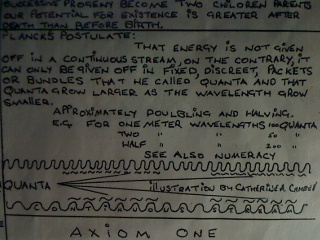 SUCCESSIVE PROGENY BECOME TWO CHILDREN PARENTS
OUR POTENTIAL FOR EXISTENCE IS GREATER AFTER
DEATH THAN BEFORE BIRTH.
PLANCKS POSTULATE:
THAT ENERGY IS NOT GIVEN
OFF IN A CONTINUOUS STREAM, ON THE CONTRARY, IT
CAN ONLY BE GIVEN OFF IN FIXED, DISCREET, PACKETS
OR BUNDLES THAT HE CALLED QUANTA AND THAT
QUANTA GROW LARGER AS THE WAVELENGTH GROW
SMALLER.
APPROXIMATELY DOULBLING AND HALVING.
E.G. FOR ONE METER WAVELENGTHS 100 QUANTA
TWO " " 50 "
HALF " " 200 "
SEE ALSO NUMERACY
QUANTA
ILLUSTRATION BY CATHERINE A.
AXIOM ONE